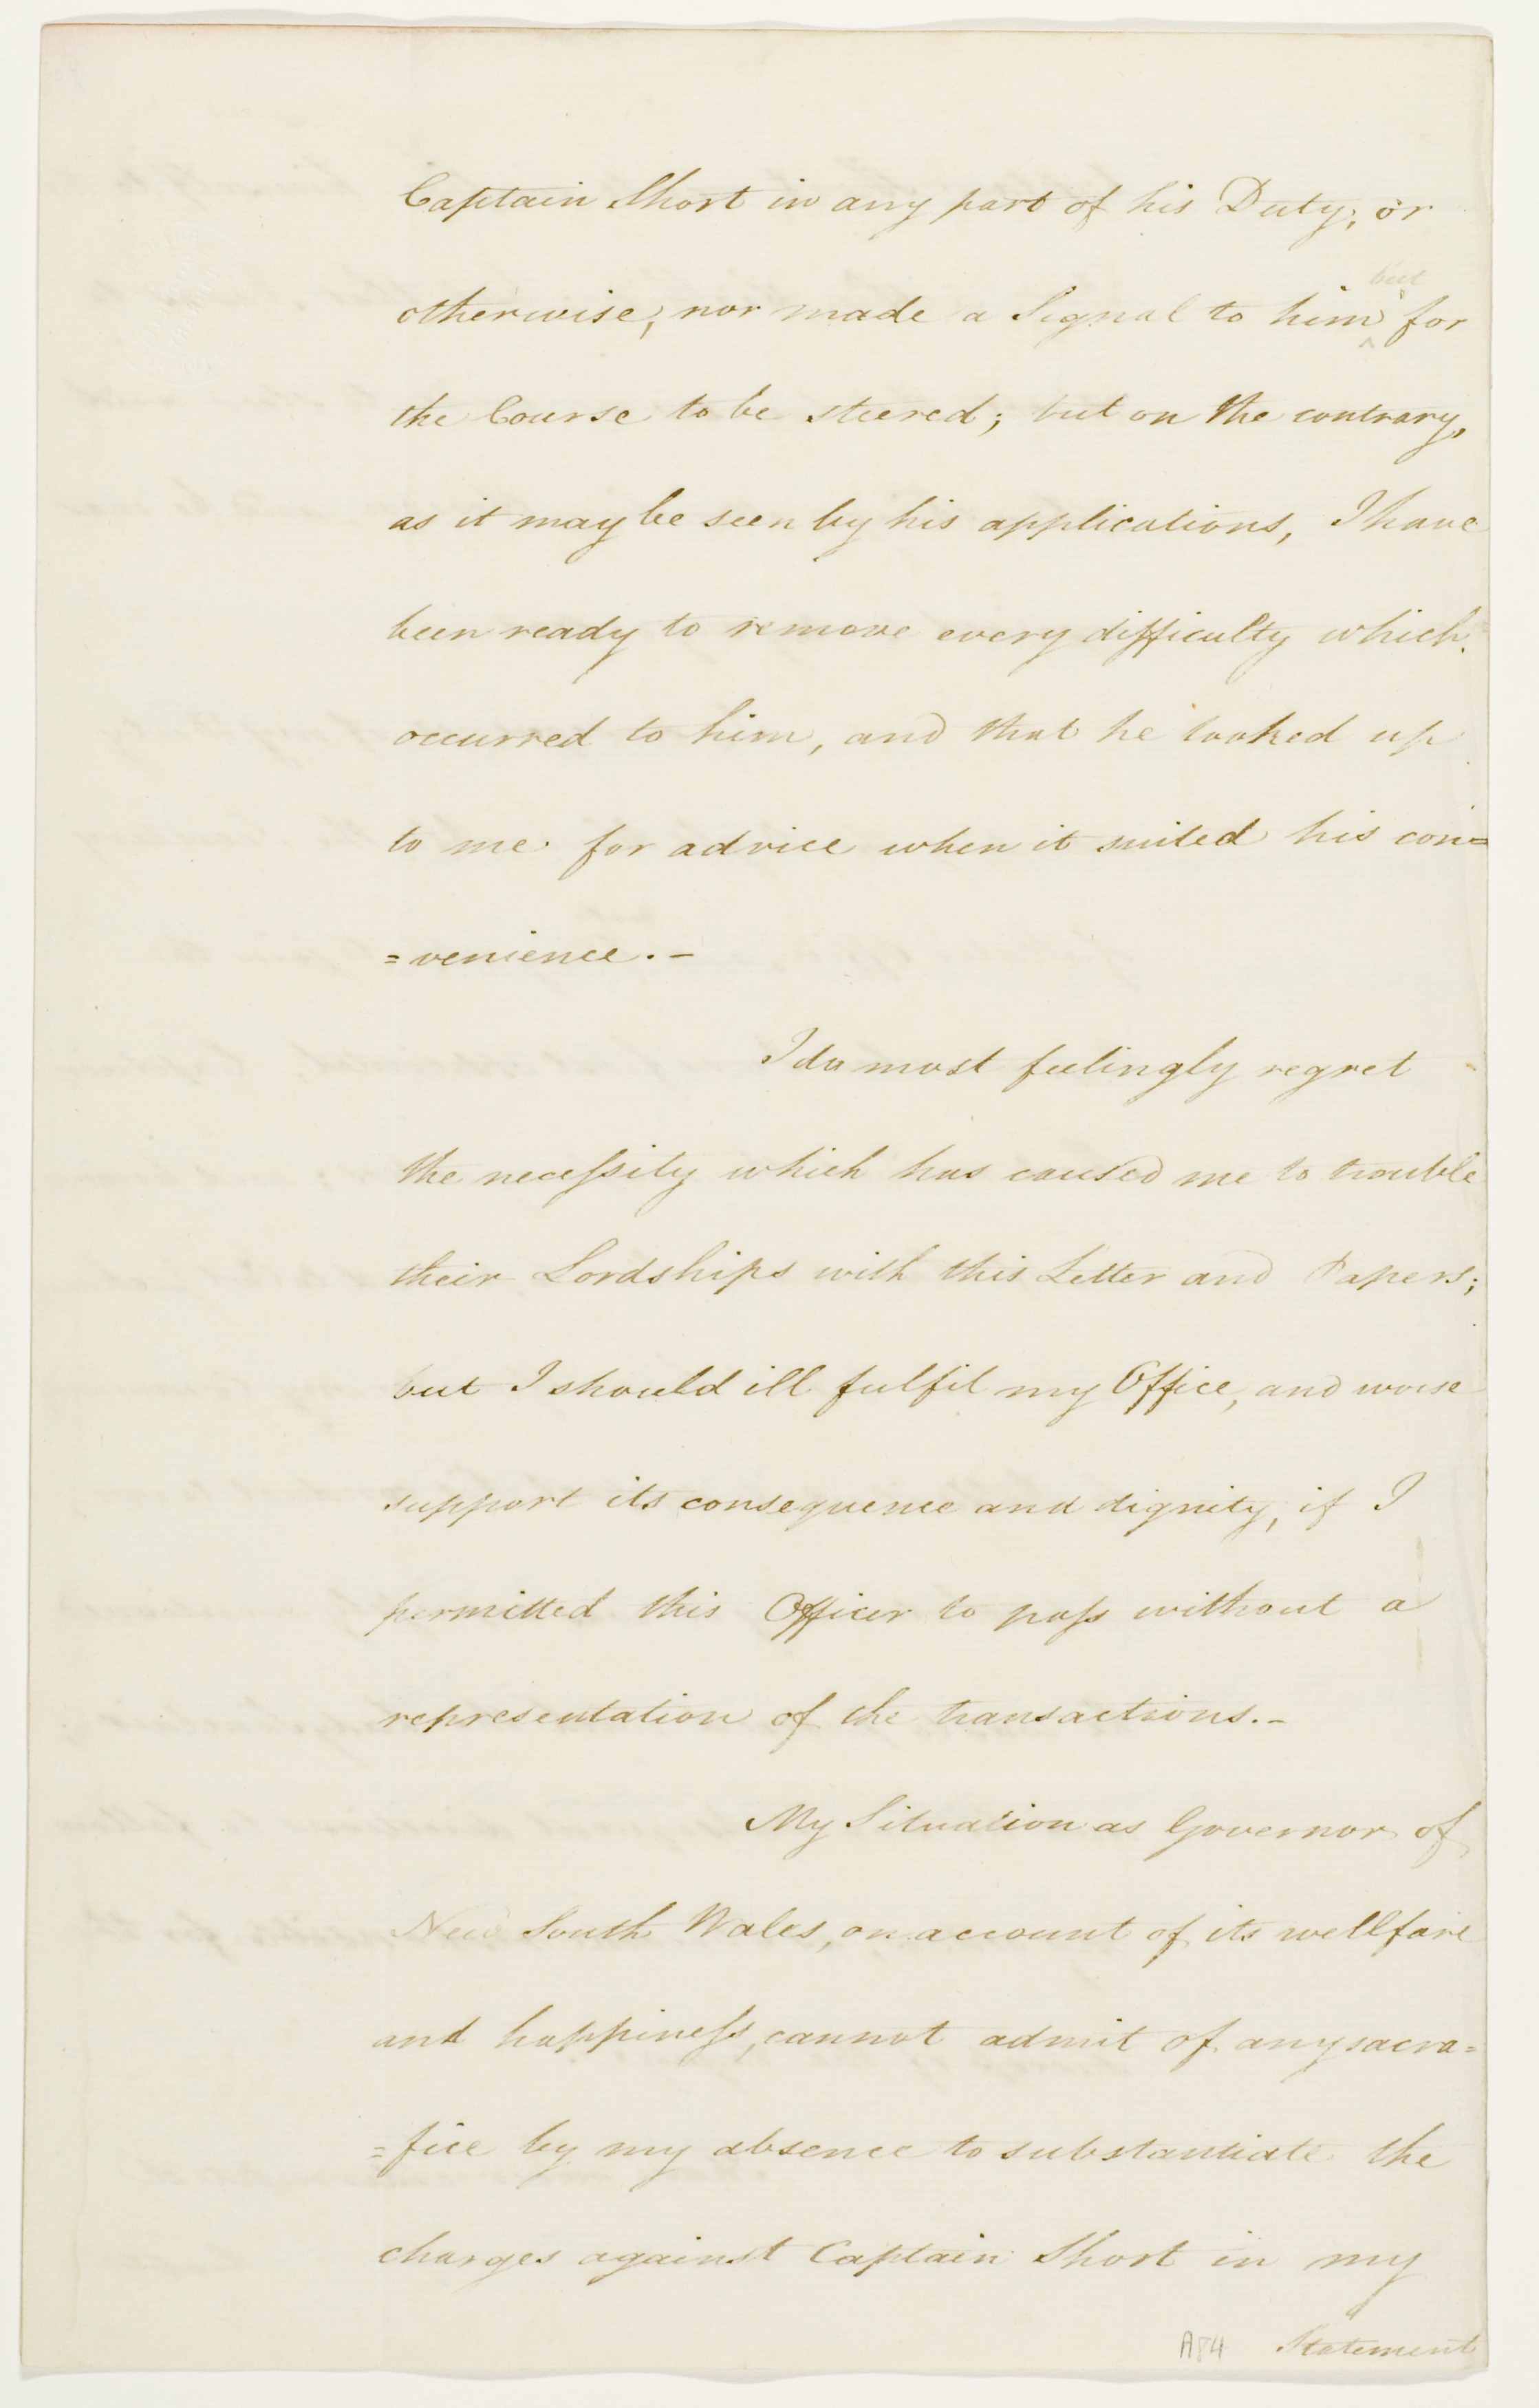 Captain Short in any part of his Duty; or
but
otherwise, nor made a Signal to him ^ for
the Course to be steered; but on the contrary,
as it may be seen by his applications, I have
been ready to remove every difficulty which
occurred to him, and that he looked up
to me for advice when it suited his con=
=venience.-
I do most feelingly regret
the necessity which has caused me to trouble
their Lordships with this Letter and Papers;
but I should ill fulfil my Office, and worse
support its consequence and dignity, if I
permitted this Officer to pass without a
representation of the transactions.-
My Situation as Governor of
New South Wales, on account of its wellfare
and happiness, cannot admit of any sacra=
=fice by my absence to substantiate the
charges against Captain Short in my
A84 Statement